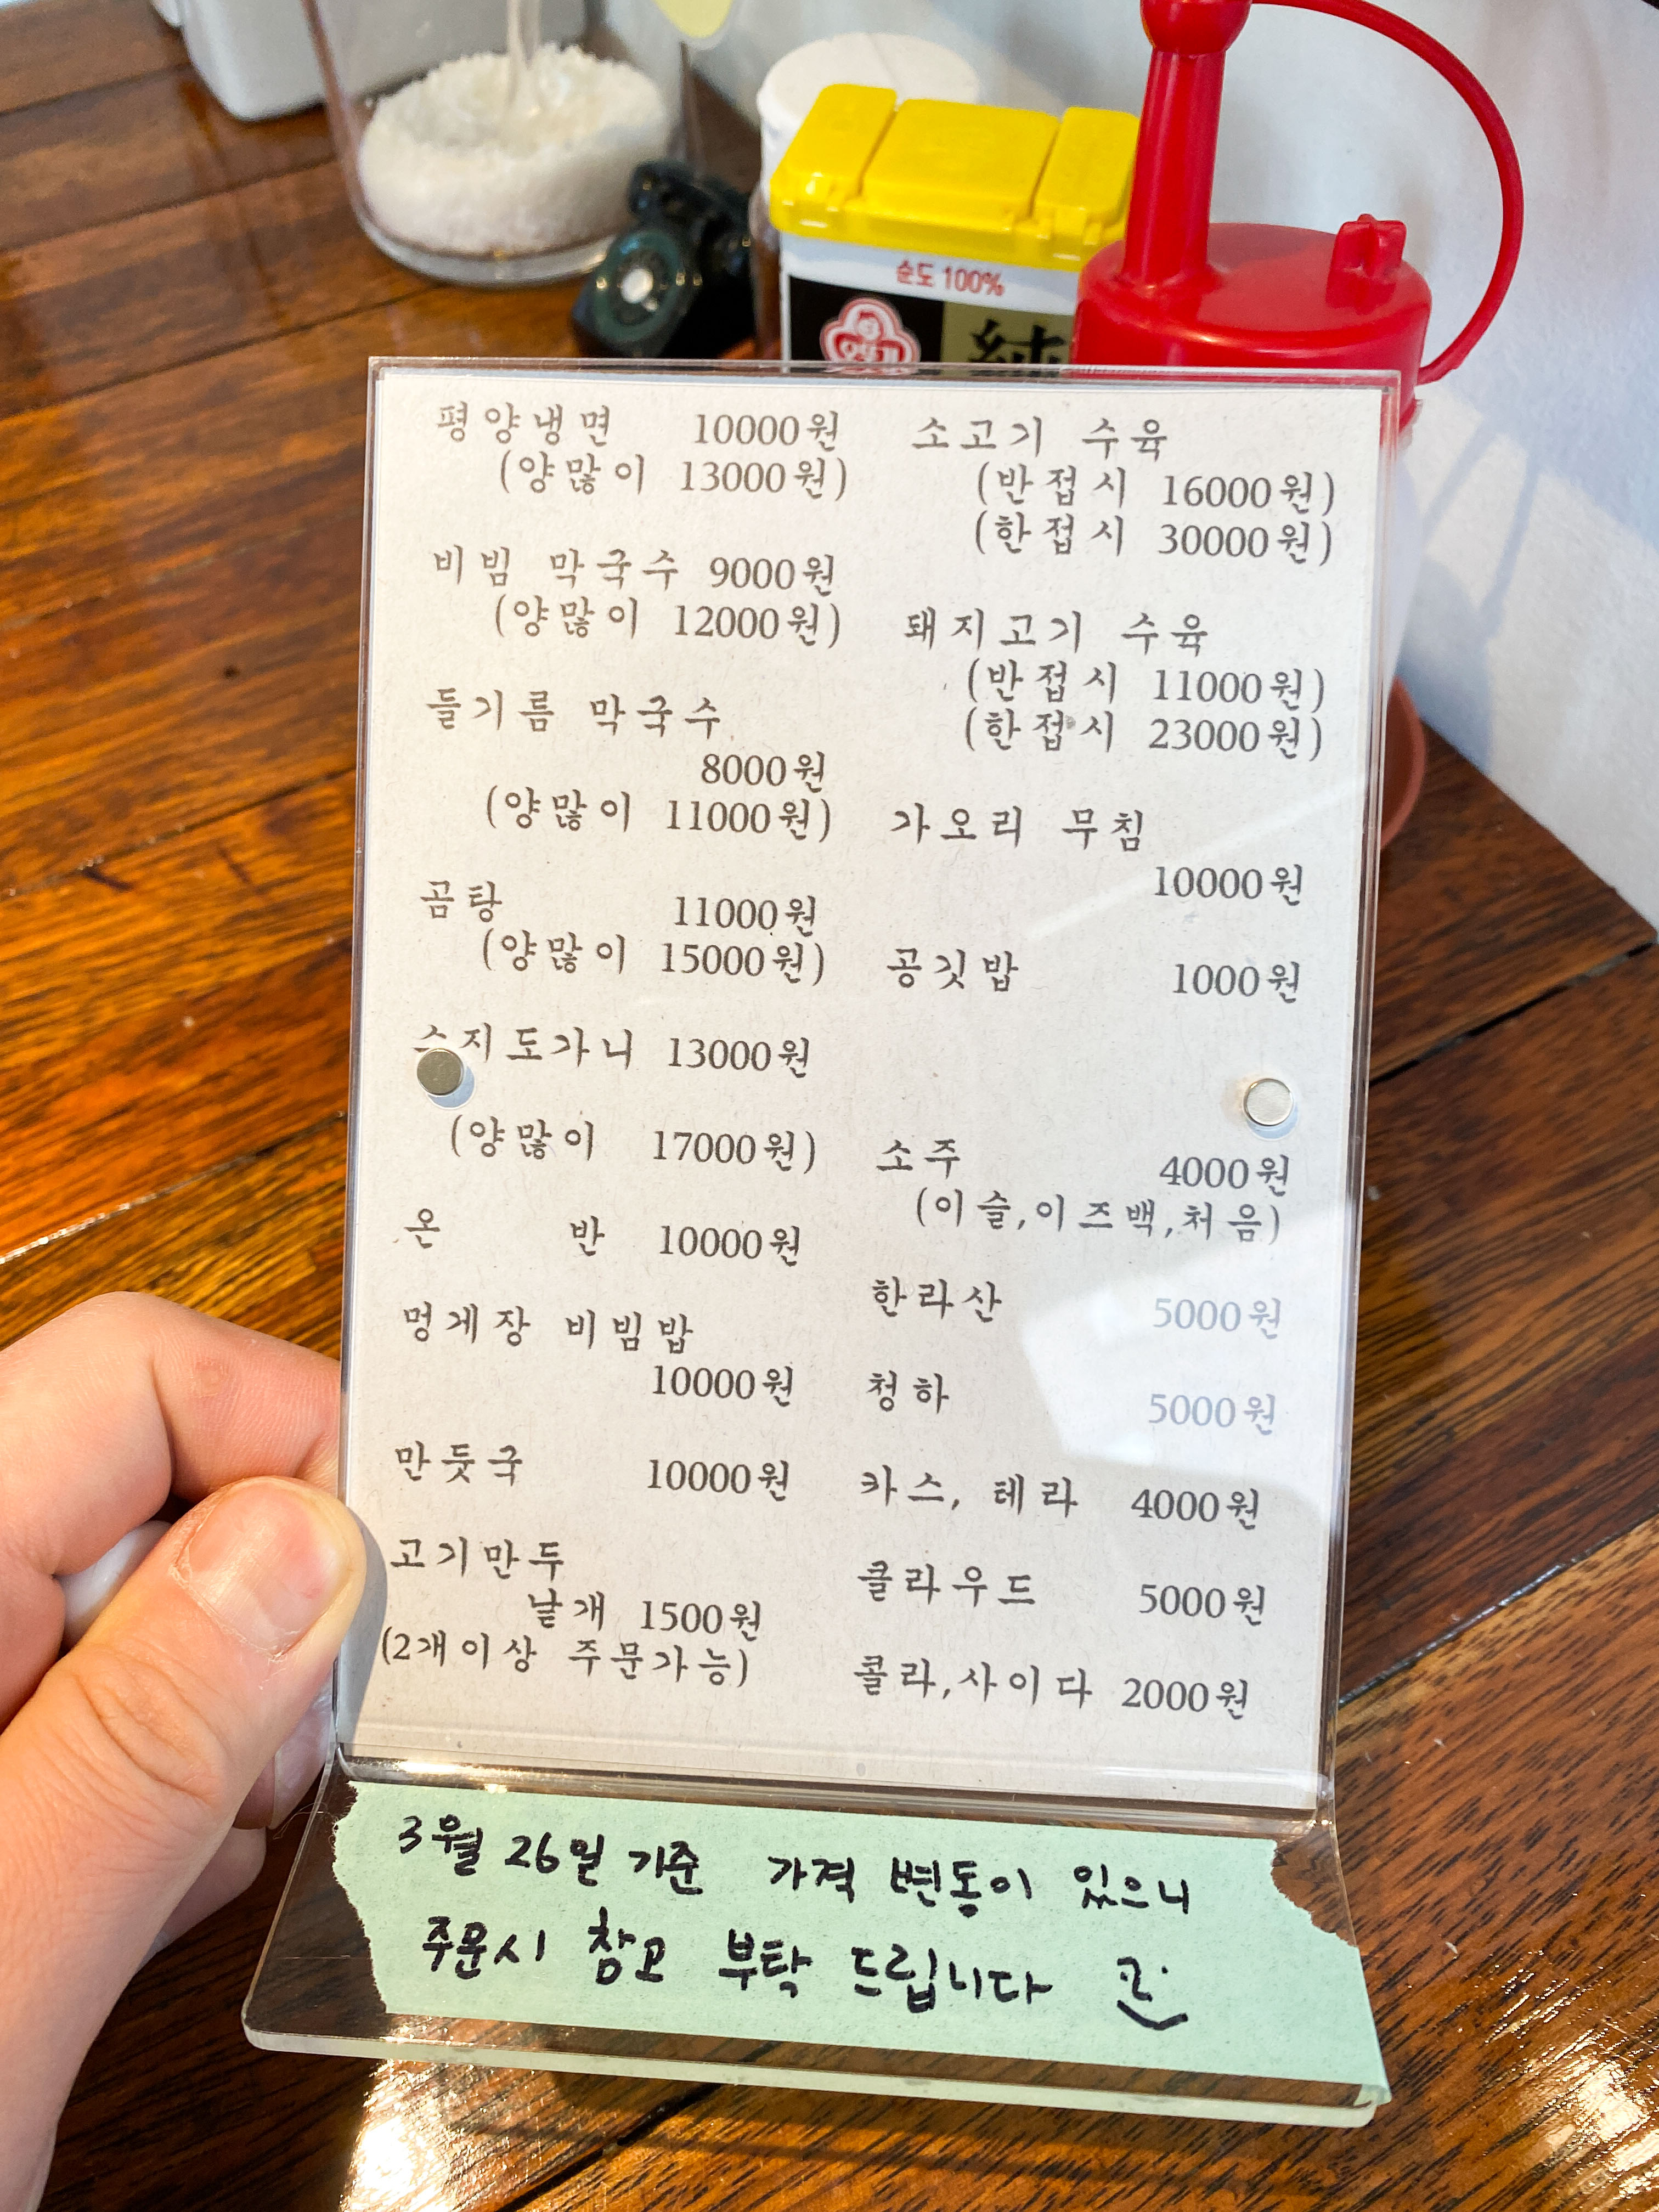 순도 100%
오뚜기
평양냉면 10000원
(양많이 13000원)
비빔 막국수 9000원
(양많이 12000원)
들기름 막국수
8000원
(양많이 11000원)
곰탕 11000원
(양많이 15000원)
스지도가니 13000원
(양많이 17000원)
온 반 10000원
멍게장 비빔밥
10000원
만둣국 10000원
고기만두
낱개 1500원
(2개이상 주문가능)
소고기 수육
(반접시 16000원)
(한접시 30000원)
돼지고기 수육
(반접시 11000원)
(한접시 23000원)
가오리 무침
10000원
공깃밥 1000원
소주 4000원
(이슬,이즈백,처음)
한라산 5000원
청하 5000원
카스, 테라 4000원
클라우드 5000원
콜라,사이다 2000원
3월 26일 기준 가격 변동이 있으니
주문시 참고 부탁 드립니다